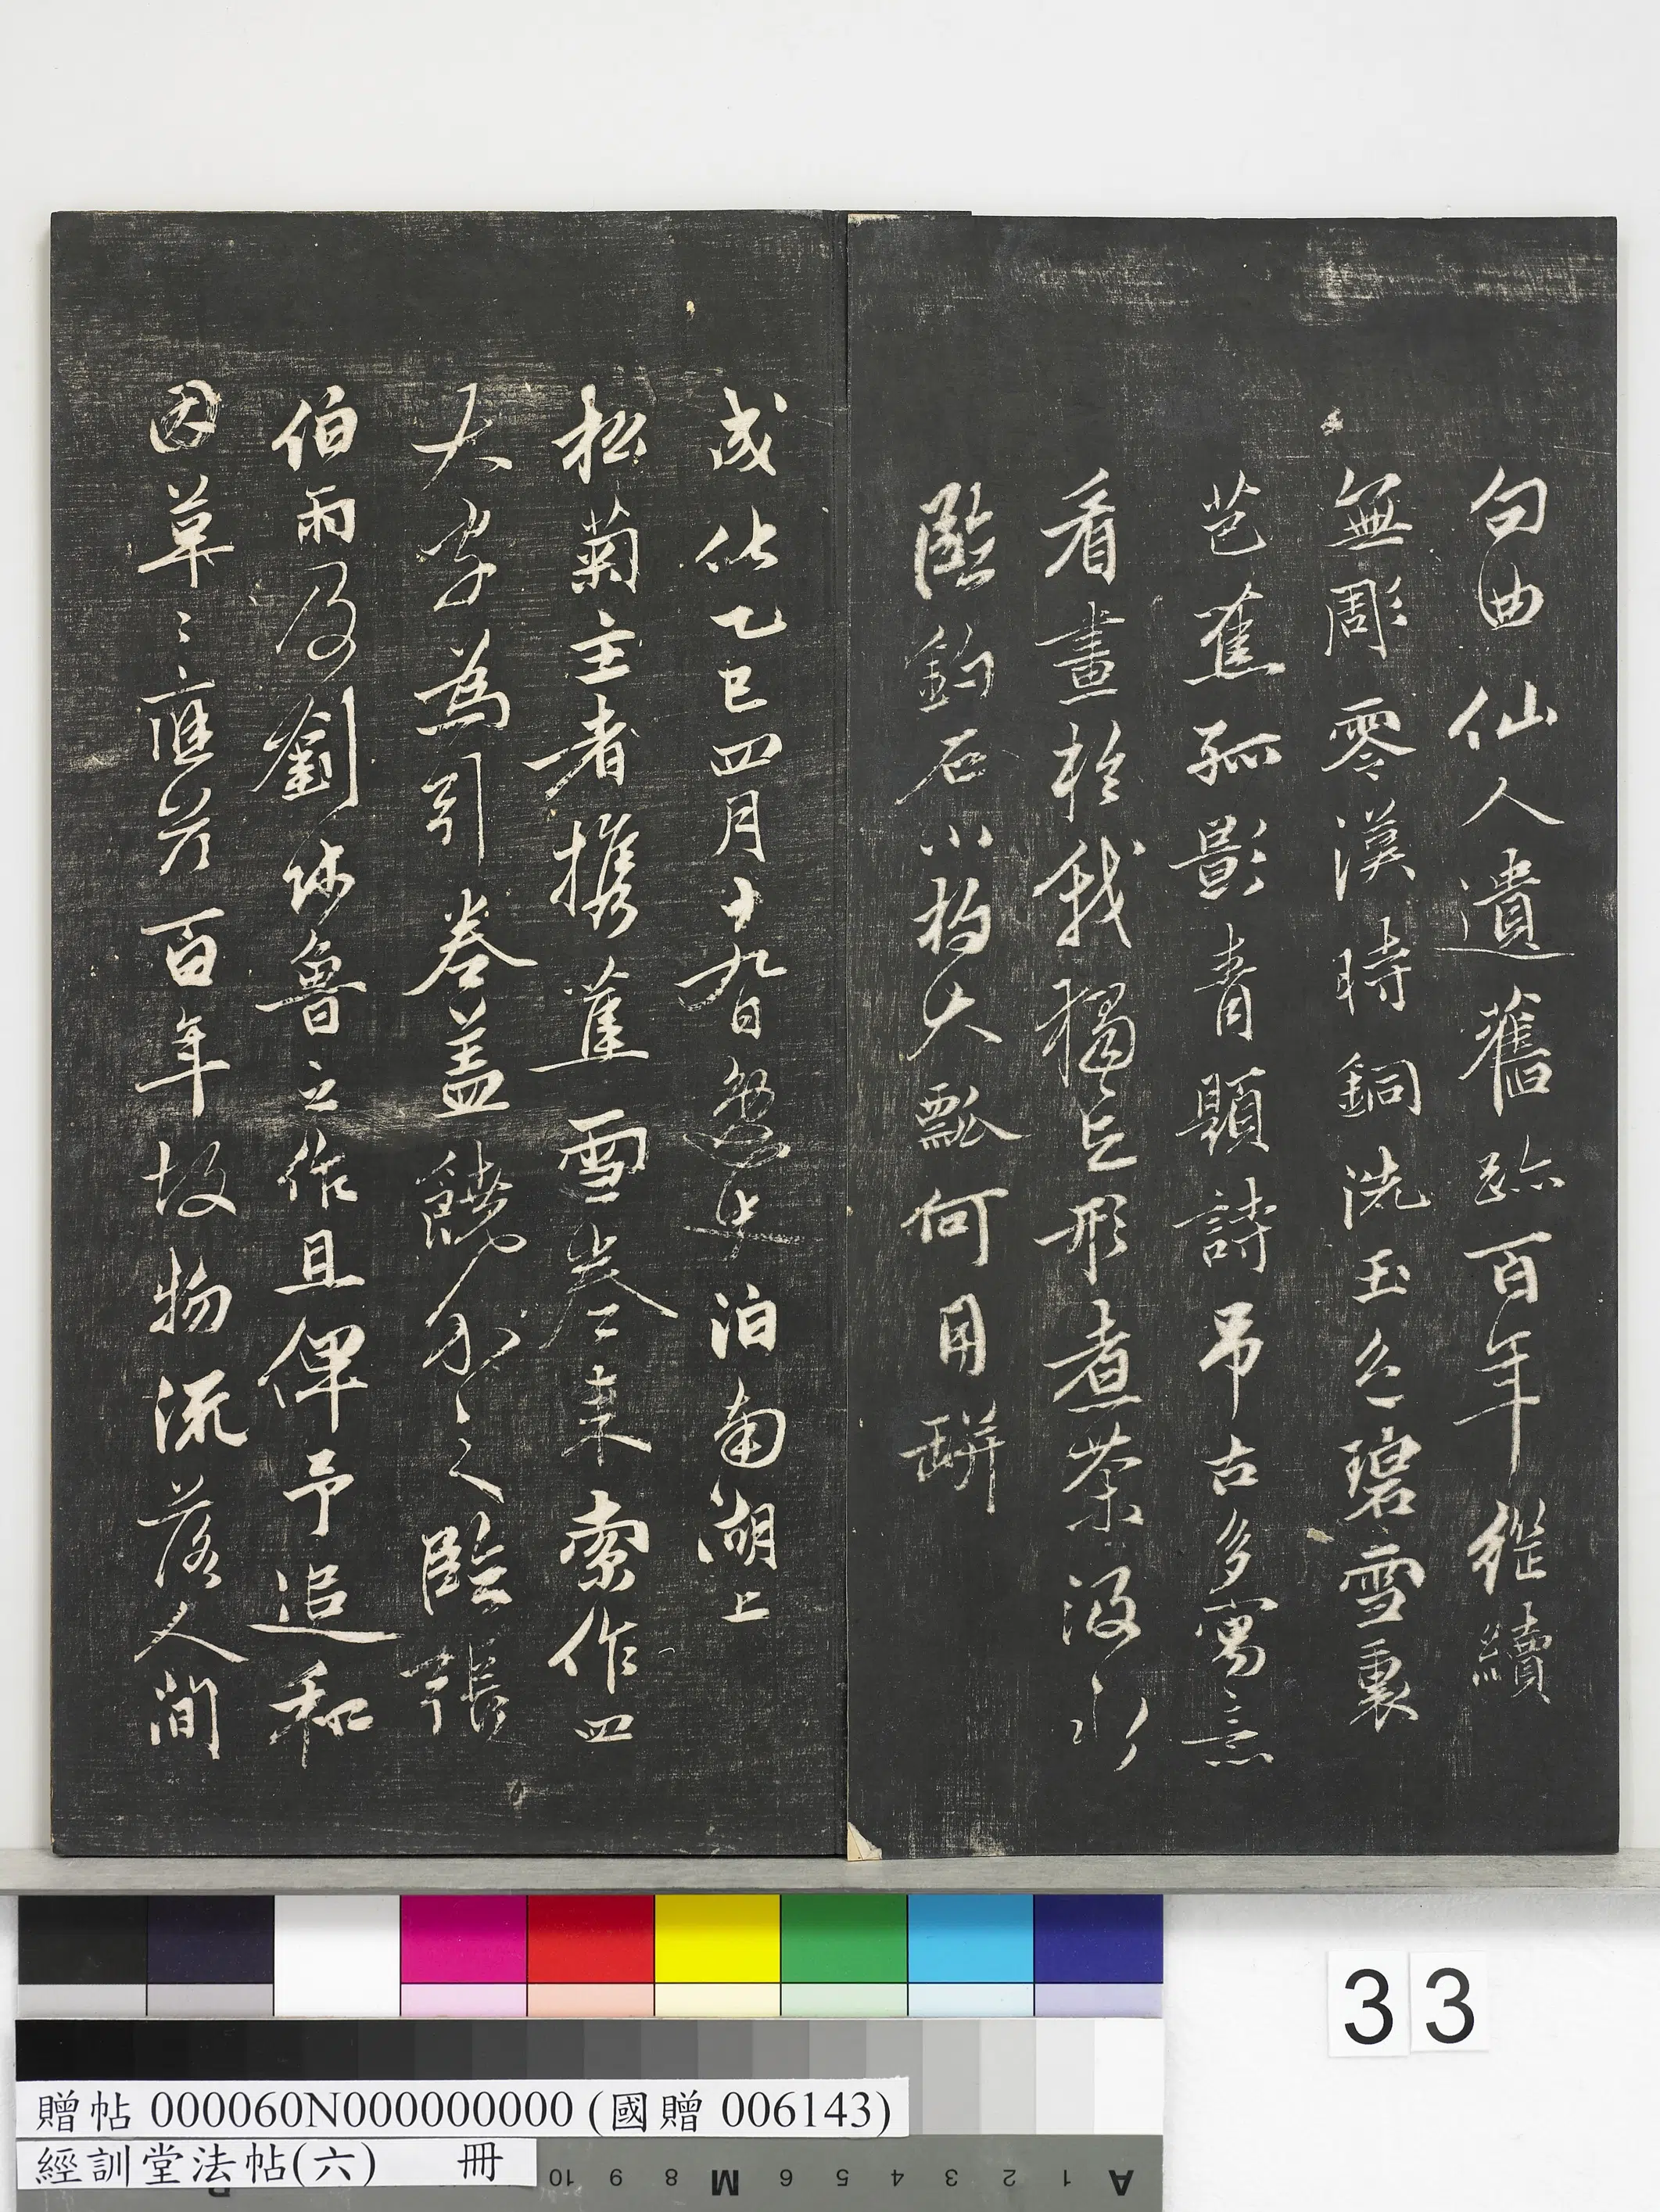 句曲仙人遺舊跡百年繼續
無彫零漢時銅洗玉色碧雪裏
芭蕉孤影青顯詩吊古多寓意
看畫於我獨忘形煮茶汲水
臨鈞石小杓大瓢何用瓶
成化乙巳四月十九日過 泊南湖上
松菊主者攜蕉雪卷來索作四
大字為引卷盖饒介之臨張
伯雨及劉師魯之作且俾予追和
因草〻應於百年故物流落人間
33
贈帖 000060N000000000 (國贈 006143)
經訓堂法帖(六) 冊
10 9 8 M 6 5 4 3 2 1 A